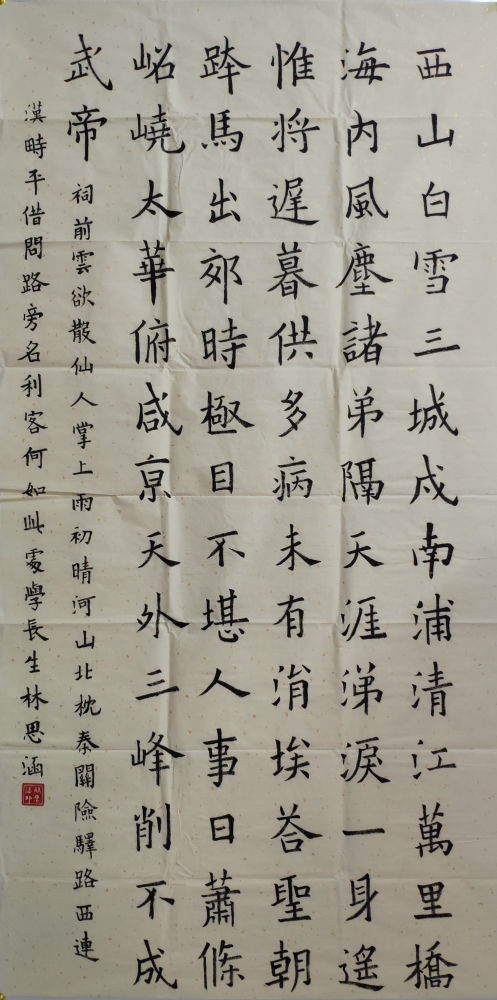 西山白雪三城戍南浦清江萬里橋
海内風塵諸弟隔天涯涕淚一身遙
惟將遲暮供多病未有涓埃荅聖朝
跨馬出郊時極目不堪人事日蕭條
岧嶢太華俯咸亰天外三峰削不成
武帝祠前雲欲散仙人掌上雨初晴河山北枕秦關險驛路西連
漢時平借問路旁名利客何如此處學長生林思涵